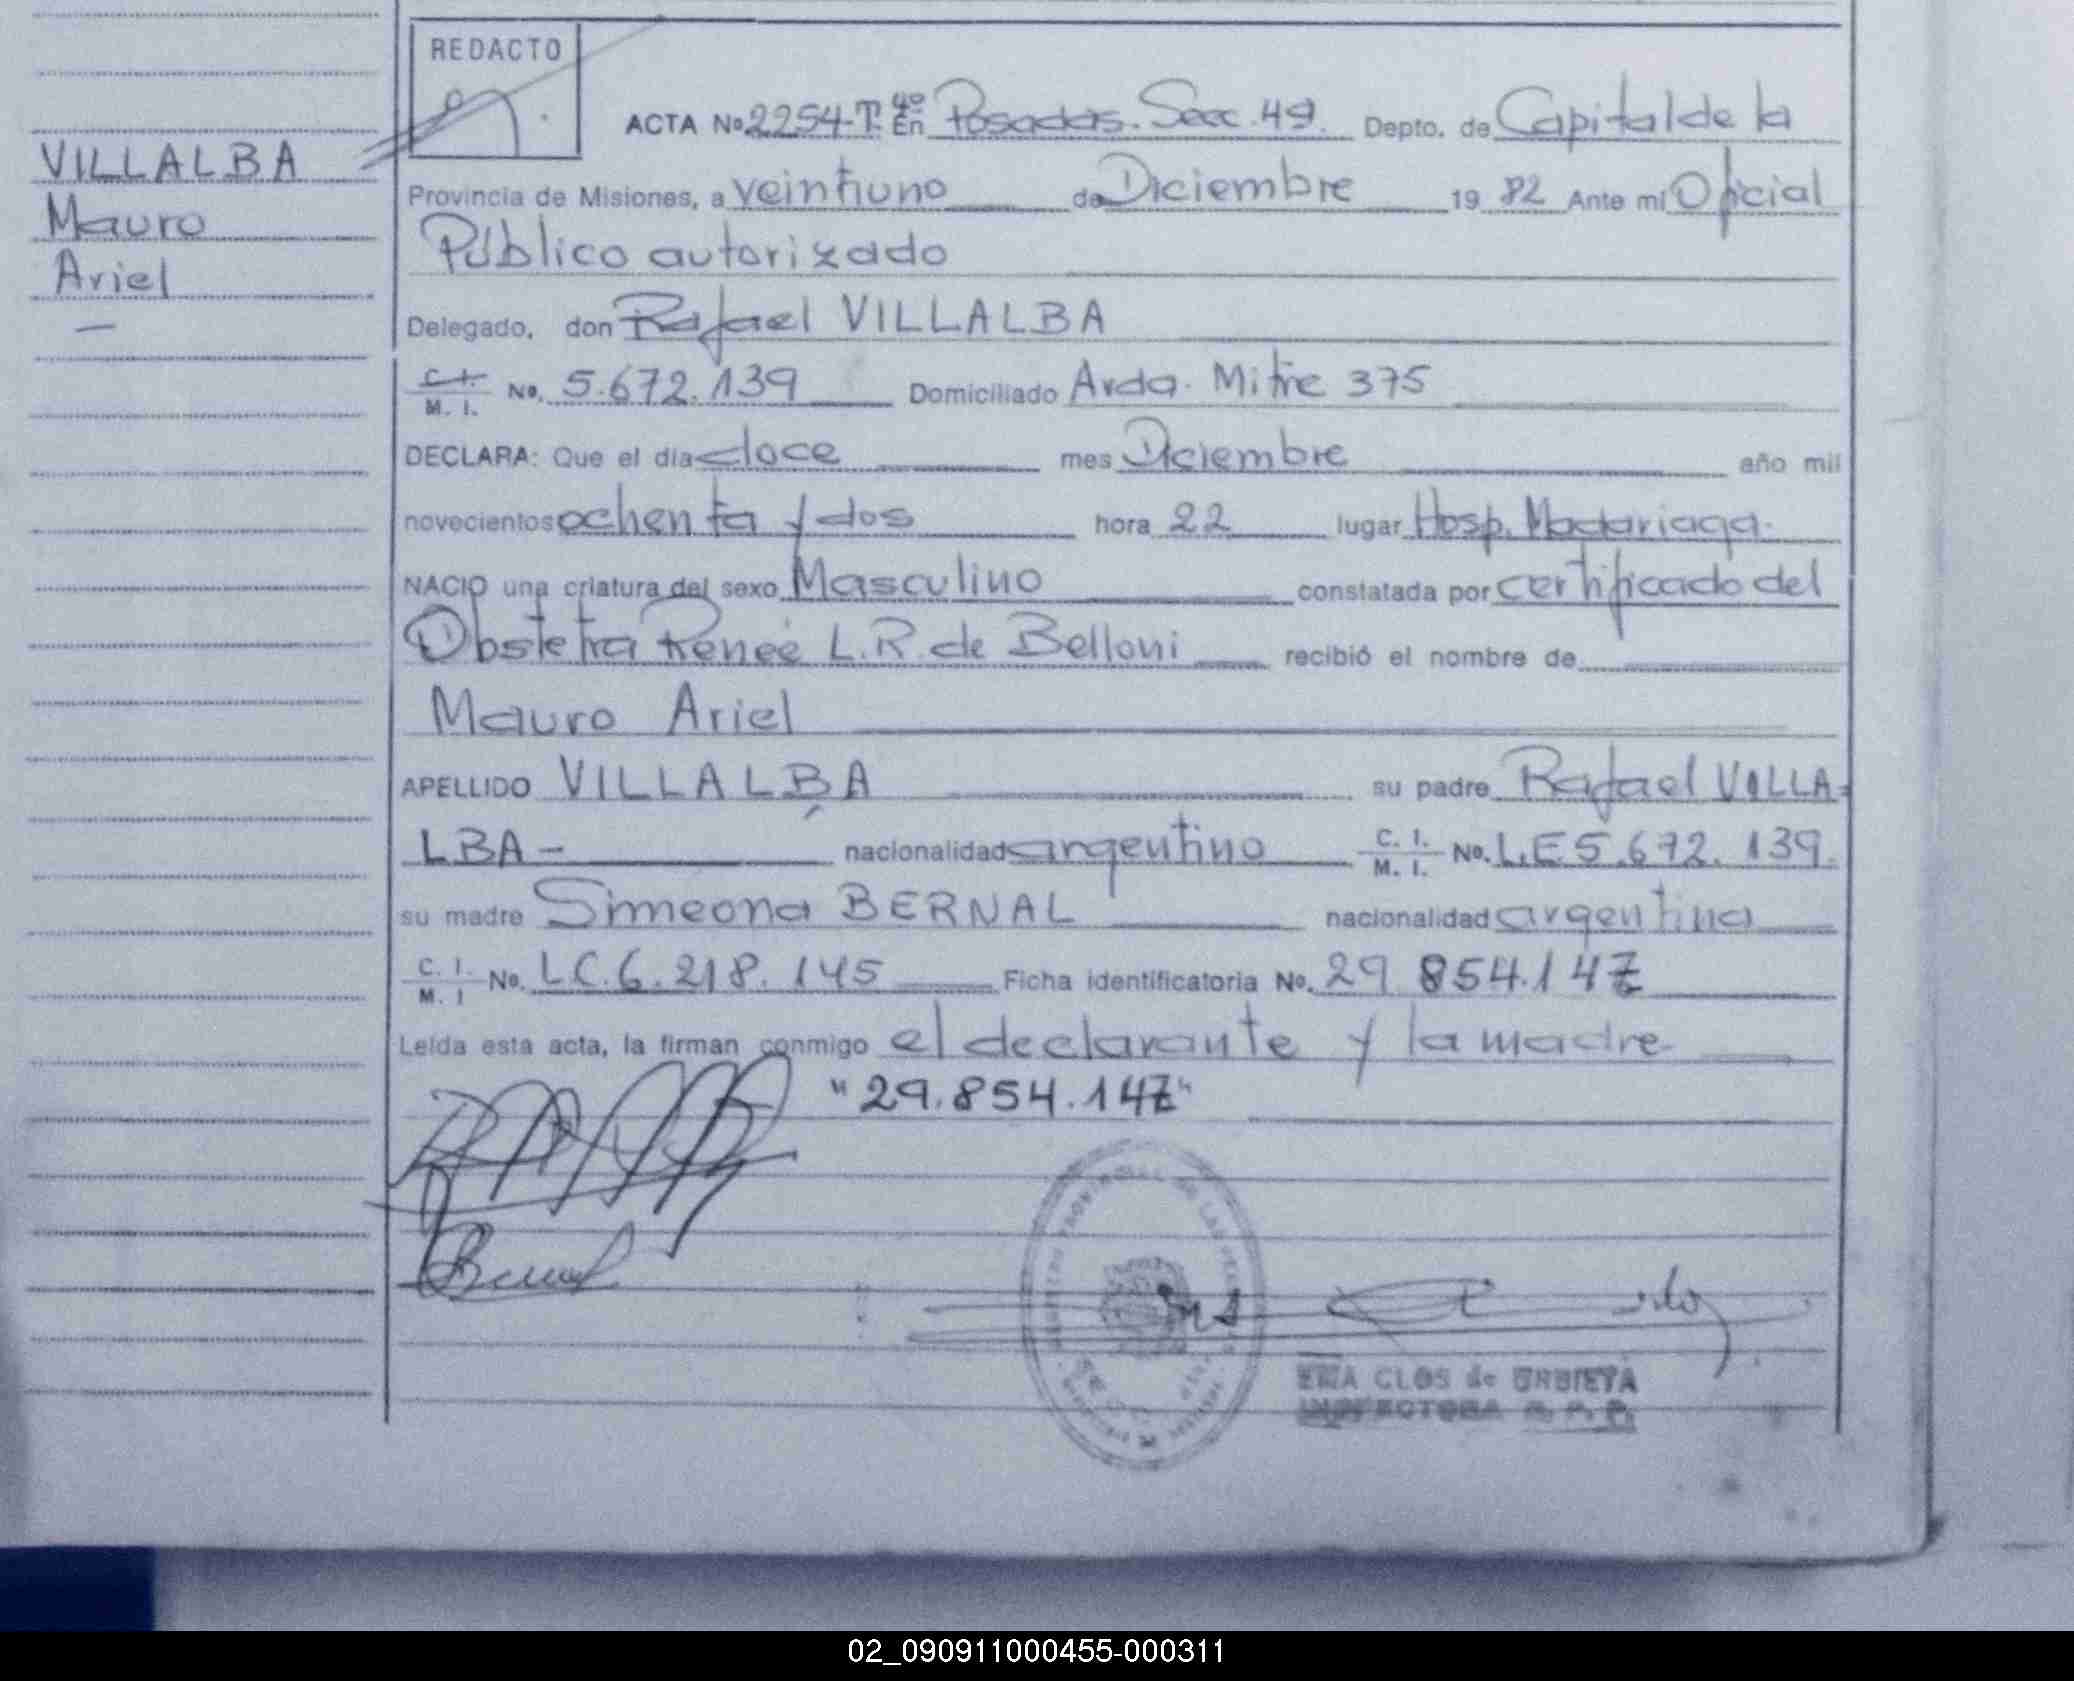 REDACTO
ACTA No 2254-T. 4º En Posadas. Secc. 49. Depto. de Capital de la
VILLALBA
Mauro
Ariel
Provincia de Misiones, a veintiuno de Diciembre 19 82 Ante mí Oficial
Público autorizado
Delegado, don Rafael VILLALBA
C. I. M. I. No. 5.672.139 Domiciliado Avda. Mitre 375
DECLARA: Que el día doce mes Diciembre año mil
novecientos ochenta y dos hora 22 lugar Hosp. Madariaga.
NACIO una criatura del sexo Masculino constatada por certificado del
Obstetra Reneé L.R. de Belloni recibió el nombre de
Mauro Ariel
APELLIDO VILLALBA su padre Rafael VILLA-
LBA- nacionalidad argentino C. I. M. I. No. L.E 5.672.139.
su madre Simeona BERNAL nacionalidad argentina
C. I. M. I No. LC.6.218.145 Ficha identificatoria No. 29 854.147
Leída esta acta, la firman conmigo el declarante y la madre
"29.854.147"
CLOS de URBIETA
INSPECTORA R. P. P.
02_090911000455-000311